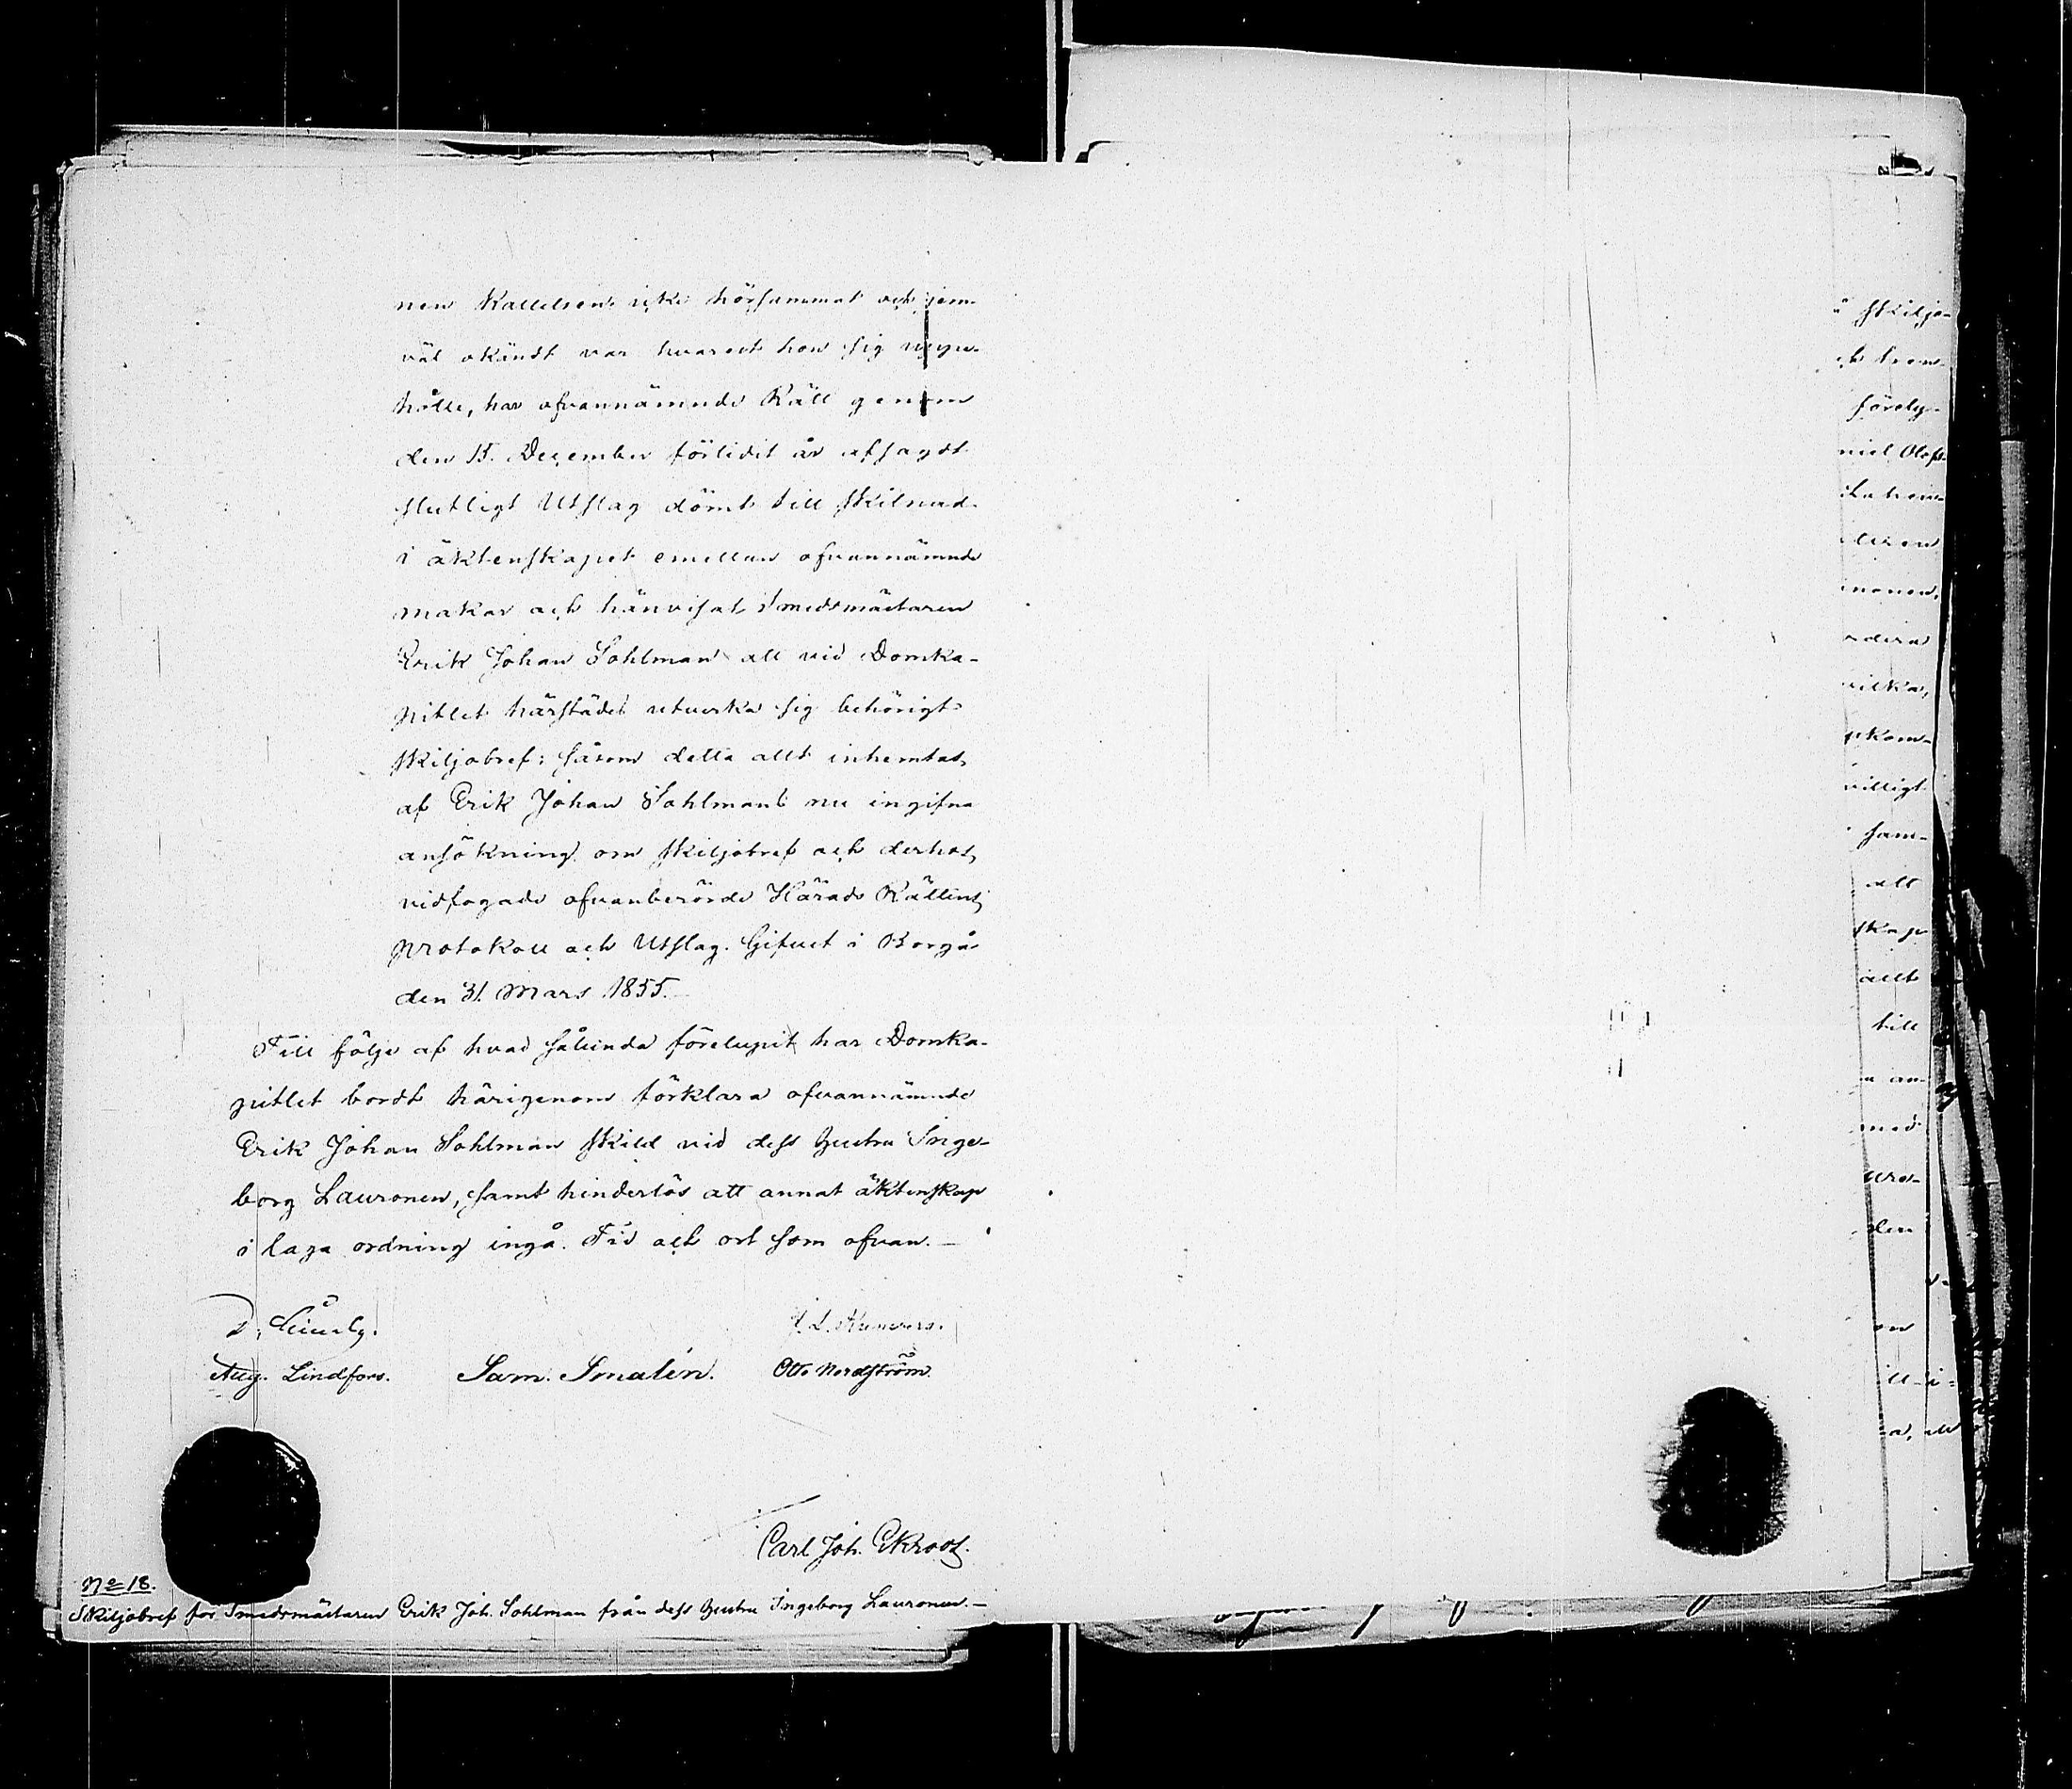 nen Kallelsen icke hörsammat och jem-
väl okändt var hvarest hon sig uppe-
hölle, har ofvannämnde Rätt genom
den 15. December förlidit år afsagdt
slutligt Utslag dömt till skilnad
i äktenskapet emellan ofvannämnde
makar och hänvisat Smedsmästaren
Erik Johan Sohlman att vid Domka-
pitlet härstädes utverka sig behörigt
skiljobref; såsom detta allt inhemtas
af Erik Johan Sohlmans nu ingifna
ansökning om skiljobref och derhos
vidfogade ofvanberörde Härads Rättens
protokoll och Utslag. Gifvet i Borgå
den 31. Mars 1855.
Till följe af hvad sålunda förelupit har Domka-
pitlet bordt härigenom förklara ofvannämnde
Erik Johan Sohlman skild vid dess hustru Inge-
borg Lauronen, samt hinderlös att annat äktenskap
i laga ordning ingå. Tid och ort som ofvan.—
Aug. Lindfors. Sam. Smalén. Otto Nordström.
Carl Joh. Ekroos.
No 18.
Skiljobref för Smedsmästaren Erik Joh. Sohlman från dess hustru Ingeborg Lauronen.—
skiljo-
förelig-
niel Olofs-
vilka,
villigt
sam-
att
skap
allt
till
med
den